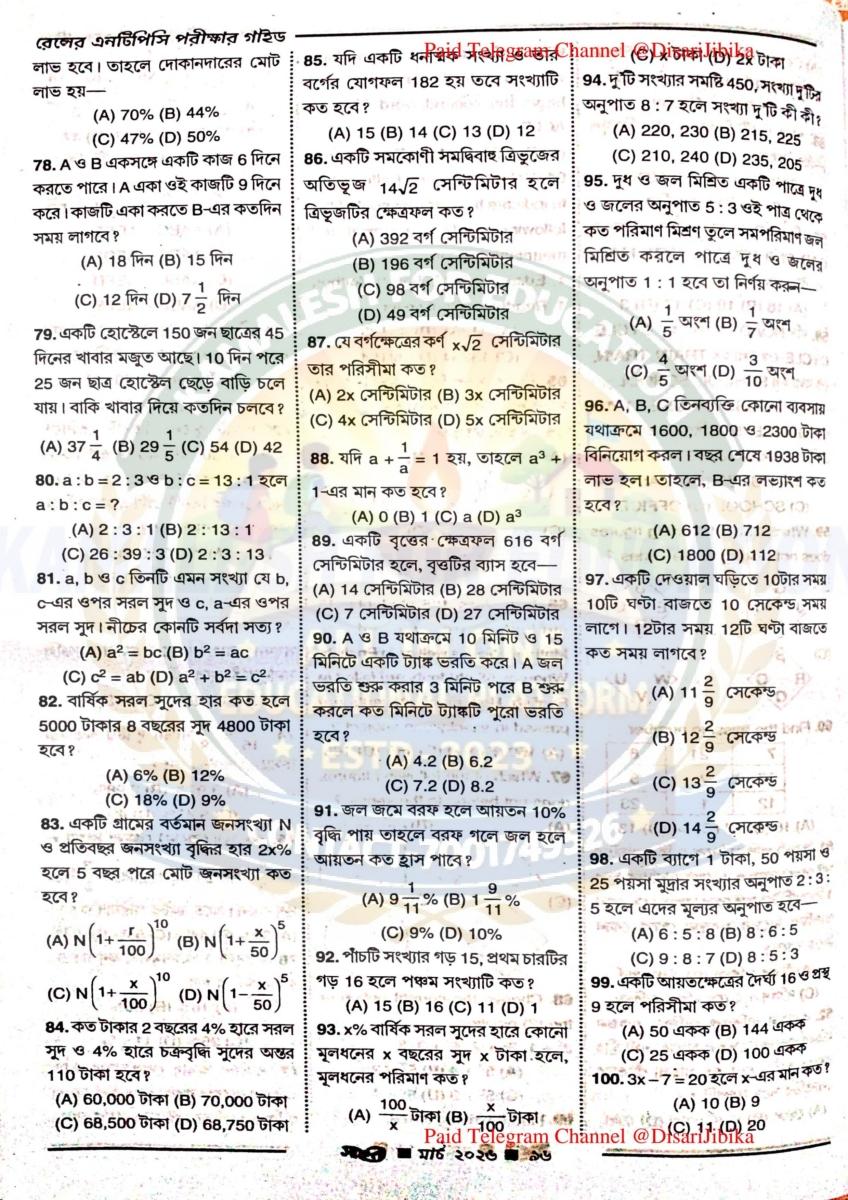 রেলের এনটিপিসি পরীক্ষার গাইড
Paid Telegram Channel @DisariJibika
লাভ হবে। তাহলে দোকানদারের মোট
লাভ হয়—
(A) 70% (B) 44%
(C) 47% (D) 50%
78. A ও B একসঙ্গে একটি কাজ 6 দিনে
করতে পারে। A একা ওই কাজটি 9 দিনে
করে। কাজটি একা করতে B-এর কতদিন
সময় লাগবে?
(A) 18 দিন (B) 15 দিন
(C) 12 দিন (D) 7 1/2 দিন
79. একটি হোস্টেলে 150 জন ছাত্রের 45
দিনের খাবার মজুত আছে। 10 দিন পরে
25 জন ছাত্র হোস্টেল ছেড়ে বাড়ি চলে
যায়। বাকি খাবার দিয়ে কতদিন চলবে?
(A) 37 1/4 (B) 29 1/5 (C) 54 (D) 42
80. a : b = 2 : 3 ও b : c = 13 : 1 হলে
a : b : c = ?
(A) 2 : 3 : 1 (B) 2 : 13 : 1
(C) 26 : 39 : 3 (D) 2 : 3 : 13
81. a, b ও c তিনটি এমন সংখ্যা যে b,
c-এর ওপর সরল সুদ ও c, a-এর ওপর
সরল সুদ। নীচের কোনটি সর্বদা সত্য?
(A) a² = bc (B) b² = ac
(C) c² = ab (D) a² + b² = c²
82. বার্ষিক সরল সুদের হার কত হলে
5000 টাকার 8 বছরের সুদ 4800 টাকা
হবে?
(A) 6% (B) 12%
(C) 18% (D) 9%
83. একটি গ্রামের বর্তমান জনসংখ্যা N
ও প্রতিবছর জনসংখ্যা বৃদ্ধির হার 2x%
হলে 5 বছর পরে মোট জনসংখ্যা কত
হবে?
(A) N(1+r/100)^10 (B) N(1+x/50)^5
(C) N(1+x/100)^10 (D) N(1−x/50)^5
84. কত টাকার 2 বছরের 4% হারে সরল
সুদ ও 4% হারে চক্রবৃদ্ধি সুদের অন্তর
110 টাকা হবে?
(A) 60,000 টাকা (B) 70,000 টাকা
(C) 68,500 টাকা (D) 68,750 টাকা
85. যদি একটি ধনাত্মক সংখ্যা ও তার
বর্গের যোগফল 182 হয় তবে সংখ্যাটি
কত হবে?
(A) 15 (B) 14 (C) 13 (D) 12
86. একটি সমকোণী সমদ্বিবাহু ত্রিভুজের
অতিভূজ 14√2 সেন্টিমিটার হলে
ত্রিভুজটির ক্ষেত্রফল কত?
(A) 392 বর্গ সেন্টিমিটার
(B) 196 বর্গ সেন্টিমিটার
(C) 98 বর্গ সেন্টিমিটার
(D) 49 বর্গ সেন্টিমিটার
87. যে বর্গক্ষেত্রের কর্ণ x√2 সেন্টিমিটার
তার পরিসীমা কত?
(A) 2x সেন্টিমিটার (B) 3x সেন্টিমিটার
(C) 4x সেন্টিমিটার (D) 5x সেন্টিমিটার
88. যদি a + 1/a = 1 হয়, তাহলে a³ +
1-এর মান কত হবে?
(A) 0 (B) 1 (C) a (D) a³
89. একটি বৃত্তের ক্ষেত্রফল 616 বর্গ
সেন্টিমিটার হলে, বৃত্তটির ব্যাস হবে—
(A) 14 সেন্টিমিটার (B) 28 সেন্টিমিটার
(C) 7 সেন্টিমিটার (D) 27 সেন্টিমিটার
90. A ও B যথাক্রমে 10 মিনিট ও 15
মিনিটে একটি ট্যাঙ্ক ভরতি করে। A জল
ভরতি শুরু করার 3 মিনিট পরে B শুরু
করলে কত মিনিটে ট্যাঙ্কটি পুরো ভরতি
হবে?
(A) 4.2 (B) 6.2
(C) 7.2 (D) 8.2
91. জল জমে বরফ হলে আয়তন 10%
বৃদ্ধি পায় তাহলে বরফ গলে জল হলে
আয়তন কত হ্রাস পাবে?
(A) 9 1/11 % (B) 1 9/11 %
(C) 9% (D) 10%
92. পাঁচটি সংখ্যার গড় 15, প্রথম চারটির
গড় 16 হলে পঞ্চম সংখ্যাটি কত?
(A) 15 (B) 16 (C) 11 (D) 1
93. x% বার্ষিক সরল সুদের হারে কোনো
মূলধনের x বছরের সুদ x টাকা হলে,
মূলধনের পরিমাণ কত?
(A) 100/x টাকা (B) x/100 টাকা
(C) x টাকা (D) 2x টাকা
94. দু'টি সংখ্যার সমষ্টি 450, সংখ্যা দু'টির
অনুপাত 8 : 7 হলে সংখ্যা দু'টি কী কী?
(A) 220, 230 (B) 215, 225
(C) 210, 240 (D) 235, 205
95. দুধ ও জল মিশ্রিত একটি পাত্রে দুধ
ও জলের অনুপাত 5 : 3 ওই পাত্র থেকে
কত পরিমাণ মিশ্রণ তুলে সমপরিমাণ জল
মিশ্রিত করলে পাত্রে দুধ ও জলের
অনুপাত 1 : 1 হবে তা নির্ণয় করুন—
(A) 1/5 অংশ (B) 1/7 অংশ
(C) 4/5 অংশ (D) 3/10 অংশ
96. A, B, C তিনব্যক্তি কোনো ব্যবসায়
যথাক্রমে 1600, 1800 ও 2300 টাকা
বিনিয়োগ করল। বছর শেষে 1938 টাকা
লাভ হল। তাহলে, B-এর লভ্যাংশ কত
হবে?
(A) 612 (B) 712
(C) 1800 (D) 112
97. একটি দেওয়াল ঘড়িতে 10টার সময়
10টি ঘণ্টা বাজতে 10 সেকেন্ড সময়
লাগে। 12টার সময় 12টি ঘণ্টা বাজতে
কত সময় লাগবে?
(A) 11 2/9 সেকেন্ড
(B) 12 2/9 সেকেন্ড
(C) 13 2/9 সেকেন্ড
(D) 14 2/9 সেকেন্ড
98. একটি ব্যাগে 1 টাকা, 50 পয়সা ও
25 পয়সা মুদ্রার সংখ্যার অনুপাত 2 : 3 :
5 হলে এদের মূল্যর অনুপাত হবে—
(A) 6 : 5 : 8 (B) 8 : 6 : 5
(C) 9 : 8 : 7 (D) 8 : 5 : 3
99. একটি আয়তক্ষেত্রের দৈর্ঘ্য 16 ও প্রস্থ
9 হলে পরিসীমা কত?
(A) 50 একক (B) 144 একক
(C) 25 একক (D) 100 একক
100. 3x − 7 = 20 হলে x-এর মান কত?
(A) 10 (B) 9
(C) 11 (D) 20
Paid Telegram Channel @DisariJibika
■ মার্চ ২০২৬ ■ ৯৬
ESTD : 2023